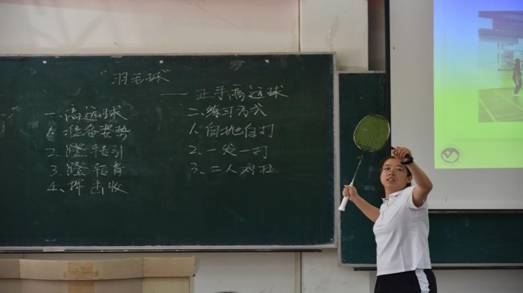 "羽毛球"
—— 正手高远球
一、高远球
1.准备姿势
2.转引
3.
4.挥击收
二、练习方式
1.自抛自打
2.一发一打
3.二人对拉